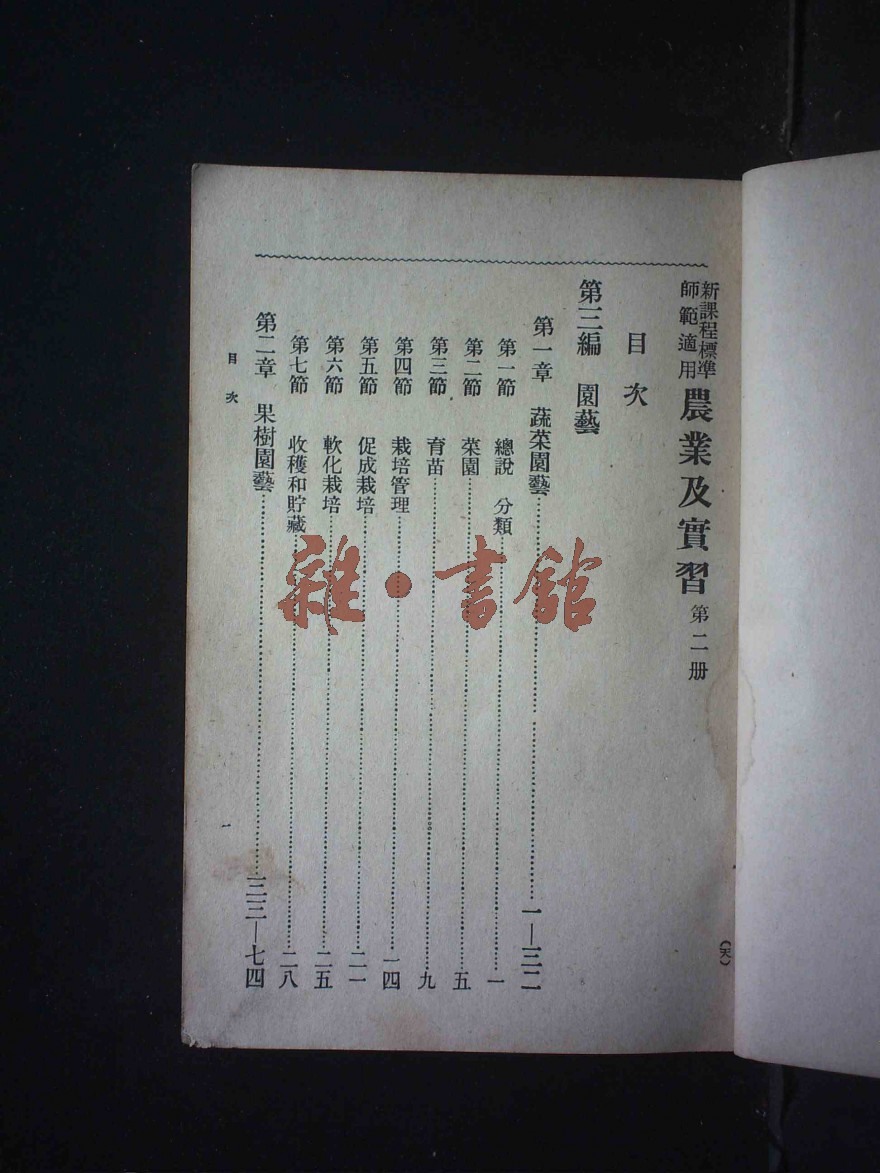 新課程標準
師範適用
農業及實習 第二册
目次
第三編 園藝
第一章 蔬菜園藝……一—三二
第一節 總說 分類……一
第二節 菜園……五
第三節 育苗……九
第四節 栽培管理……一四
第五節 促成栽培……二一
第六節 軟化栽培……二五
第七節 收穫和貯藏……二八
第二章 果樹園藝……三三—七四
目次
一
(天)
雜·書館